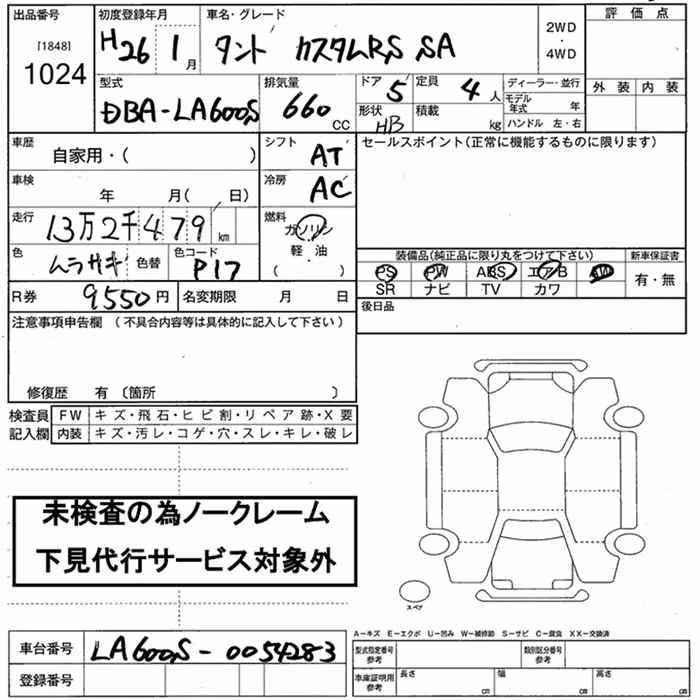 出品番号 初度登録年月 車名・グレード 評価点
[1848] H26 1月 タント カスタムRS SA 2WD・4WD
1024
型式 排気量 ドア 5 定員 4人 ディーラー・並行 外装 内装
DBA-LA600S 660 CC 形状 HB 積載 kg モデル年式 年
ハンドル 左・右
車歴 自家用・( ) シフト AT セールスポイント(正常に機能するものに限ります)
車検 年 月( 日) 冷房 AC
走行 13万2千479 km 燃料 ガソリン
軽・油
・( )
色 ムラサキ 色替 色コード P17 装備品(純正品に限り丸をつけて下さい) 新車保証書
PS PW ABS エアB AW 有・無
SR ナビ TV カワ
R券 9550円 名変期限 月 日 後日品
注意事項申告欄 (不具合内容等は具体的に記入して下さい)
修復歴 有 (箇所 )
検査員 FW キズ・飛石・ヒビ割・リペア跡・X要
記入欄 内装 キズ・汚レ・コゲ・穴・スレ・キレ・破レ
未検査の為ノークレーム
下見代行サービス対象外
スペア
A-キズ E-エクボ U-凹み W-補修跡 S-サビ C-腐食 XX-交換済
車台番号 LA600S-0054283 型式指定番号 参考 類別区分番号 参考
登録番号 車庫証明用 参考 長さ cm 幅 cm 高さ cm